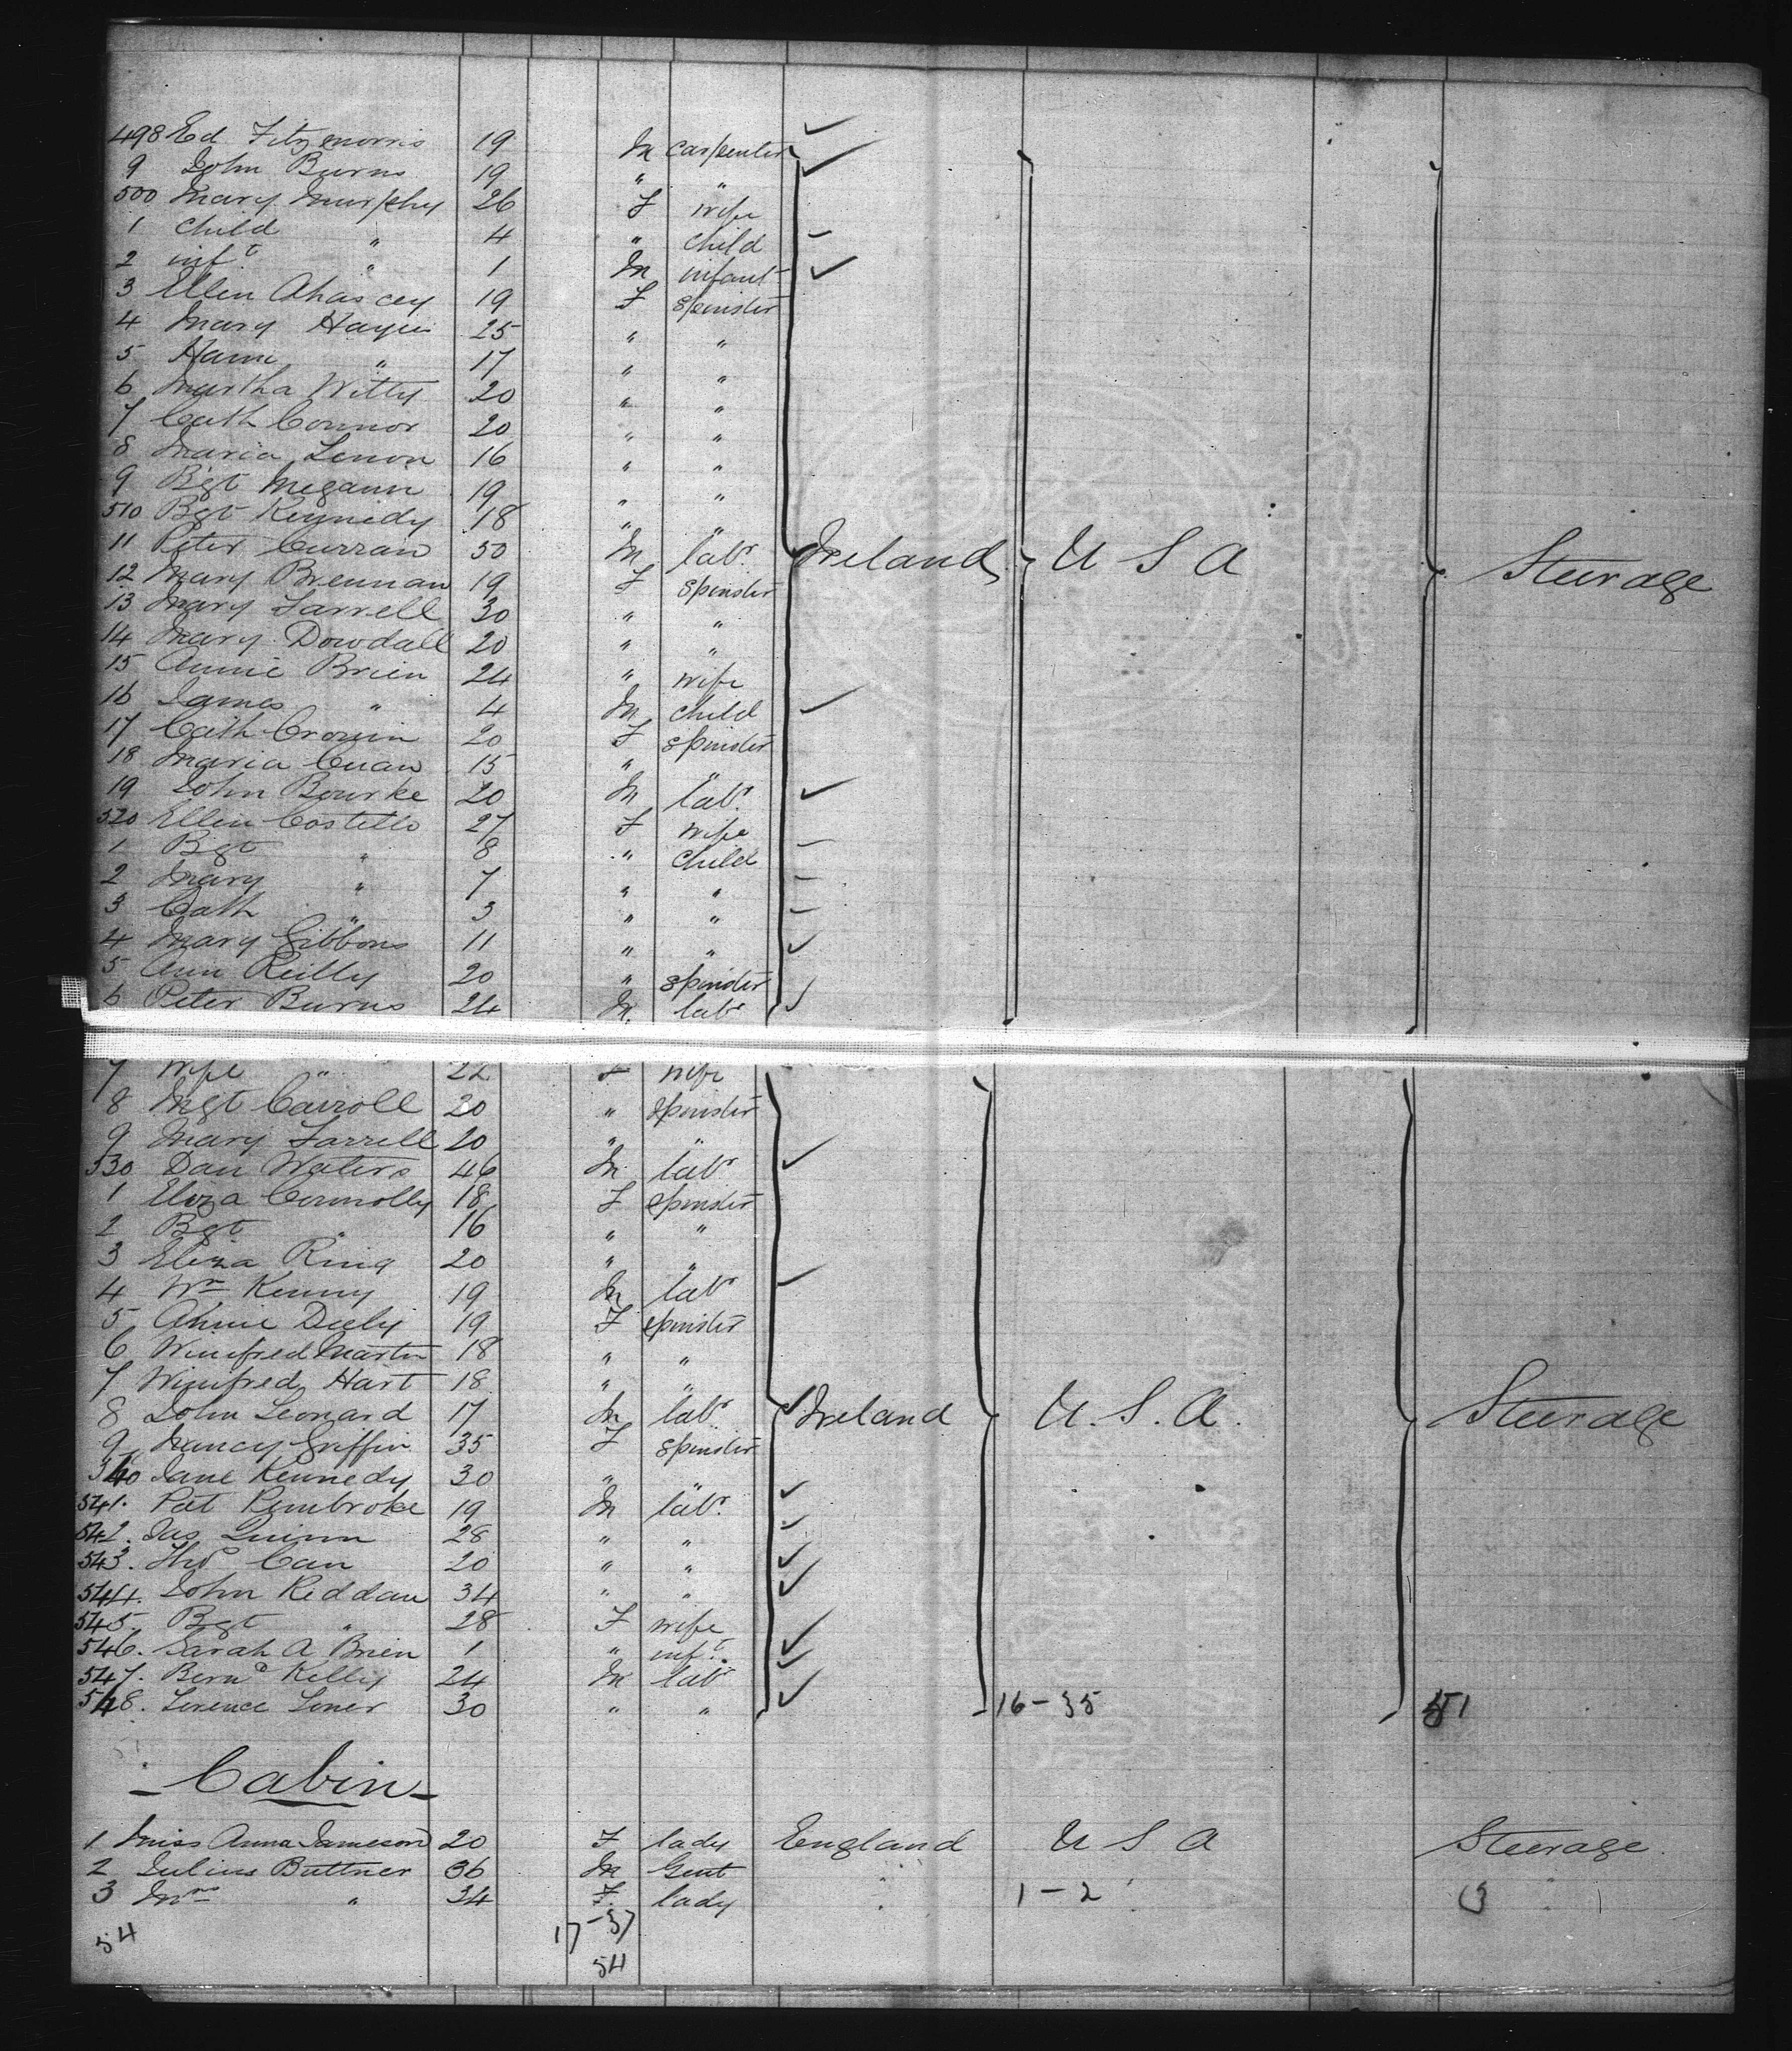 498 Ed Fitzmorris 19 M carpenter
9 John Burns 19 " "
500 Mary Murphy 26 F wife
1 Child " 4 " child
2 inft " 1 M infant
3 Ellen 19 F spinster
4 Mary Hayes 25 " "
5 " 17 " "
6 Martha Witty 20 " "
7 Cath Connor 20 " "
8 Maria Lenon 16 " "
9 Bgt Megann 19 " "
510 Bgt Kennedy 18 " "
11 Peter Curran 50 M labr Ireland U S A Steerage
12 Mary Brennan 19 F spinster
13 Mary Farrell 30 " "
14 Mary Dowdall 20 " "
15 Annie Brien 24 " wife
16 James " 4 M child
17 Cath Cronin 20 F spinster
18 Maria 15 " "
19 John Bourke 20 M labr
520 Ellen Costello 27 F wife
1 Bgt " 8 " child
2 Mary " 7 " "
3 Cath " 3 " "
4 Mary Gibbons 11 " "
5 Ann Reilly 20 " spinster
6 Peter Burns 24 M labr
7 Wife " 22 F wife
8 Mgt Carroll 20 " spinster
9 Mary Farrell 20 " "
530 Dan Waters 46 M labr
1 Eliza Connolly 18 F spinster
2 Bgt " 16 " "
3 Eliza Ring 20 " "
4 Wm Kenny 19 M labr
5 Annie Deely 19 F spinster
6 Winifred Martin 18 " "
7 Winifred Hart 18 " "
8 John Leonard 17 M labr Ireland U. S. A. Steerage
9 Nancy Griffin 35 F spinster
540 Jane Kennedy 30 " "
541. Pat Pembroke 19 M labr.
542. Jas Quinn 28 " "
543. Thos Can 20 " "
544. John Reddan 34 " "
545. Bgt " 28 F wife
546. Sarah A Brien 1 " inft.
547. Bernd Kelly 24 M labr
548. 30 " " 16-35 51
- Cabin -
1 Miss Anna Jameson 20 F lady England U S A Steerage.
2 Julius Buttner 36 M Gent
3 Mrs " 34 F. lady 1-2 3
54 17-37
54